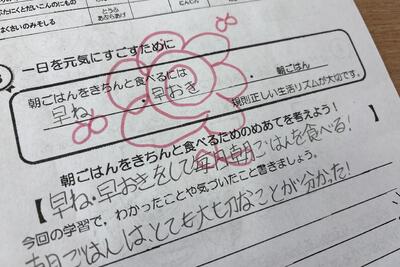 とうふ
あぶらあげ
ぶたにくとだいこんのにもの
はくさいのみそしる
一日を元気にすごすために
朝ごはんをきちんと食べるには
早ね・早おき・朝ごはん
規則正しい生活リズムが大切です。
朝ごはんをきちんと食べるためのめあてを考えよう！
【早ね・早おきをして毎日朝ごはんを食べる！
今回の学習で、わかったことや気づいたこと書きましょう。
朝ごはんは、とても大切なことが分かった！